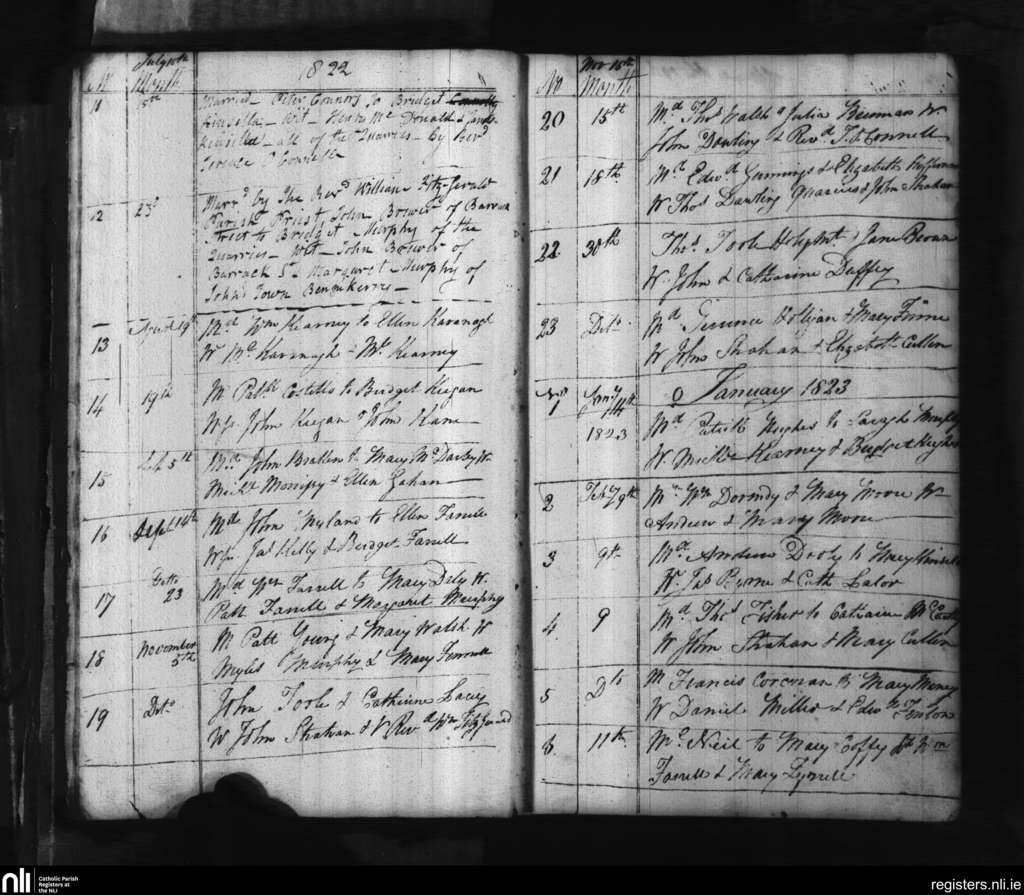 No July 10th Month 1822
11 15th Married - Peter Connors to Bridget Connolly
Kinsella - Wit - Henry Mc Donald &
Kinsella - all of the Quarries - by Revd
Terence O Connell
12 23d Marrd by The Revd William Fitz-Gerald
Parish Priest, John Brewer of Barrack
Street to Bridget Murphy of the
Quarries - Wit - John Brewer of
Barrack St - Margaret Murphy of
John's Town Bennekerry -
13 August 19th Md Wm Kearney to Ellen Kavanagh
Ws Kavanagh - Kearney
14 19th M Patk Costillo to Bridget Keegan
Ws John Keegan & John Kane
15 5th Md John Bratten to Mary Mc Darby W
Michl Morrissy & Ellen Gahan
16 14th Md John Nyland to Ellen Farrell
Ws Jas Kelly & Bridget Farrell
17 Ditto 23 Md Wm Farrell to Mary Daly W
Patt Farrell & Margaret Murphy
18 November 5th M Patt Young & Mary Walsh W
Myles Murphy & Mary
19 Dito John Toole & Catherine Lacey
W John Strahan & Revd Wm Fitzgerald
No Nov 15th Month
20 15th Md Thos Walsh & Julia W
John Dowling & Revd T. O Connell
21 18th Md Edwd Jennings & Elizabeth
W Thos Dowling Quarries & John Strahan
22 30th Thos Toole & Jane Byrne
W. John & Catharine Duffey
23 Dito Md Terence & Mary
W John Strahan & Elizabth Cullen
January 1823
1 Jany 14th 1823 Md Patrick Hughes to
W. Michl Kearney & Bridget Hughes
2 Feby 9th Md Wm Dormdy & Mary Moore W
Andrew & Mary Moore
3 9th Md Andrew Dooly to Mary
W. Jas Byrne & Cath Lalor
4 9 Md Thos Fisher to Catharine
W John Strahan & Mary Cullen
5 Dto M Francis Corcoran to Mary Money
W Daniel Millet & Edwd
8 11th Md Neil to Mary Coffy Wm
Farrell & Mary Tyrrell
nli Catholic Parish
Registers at
the NLI
registers.nli.ie